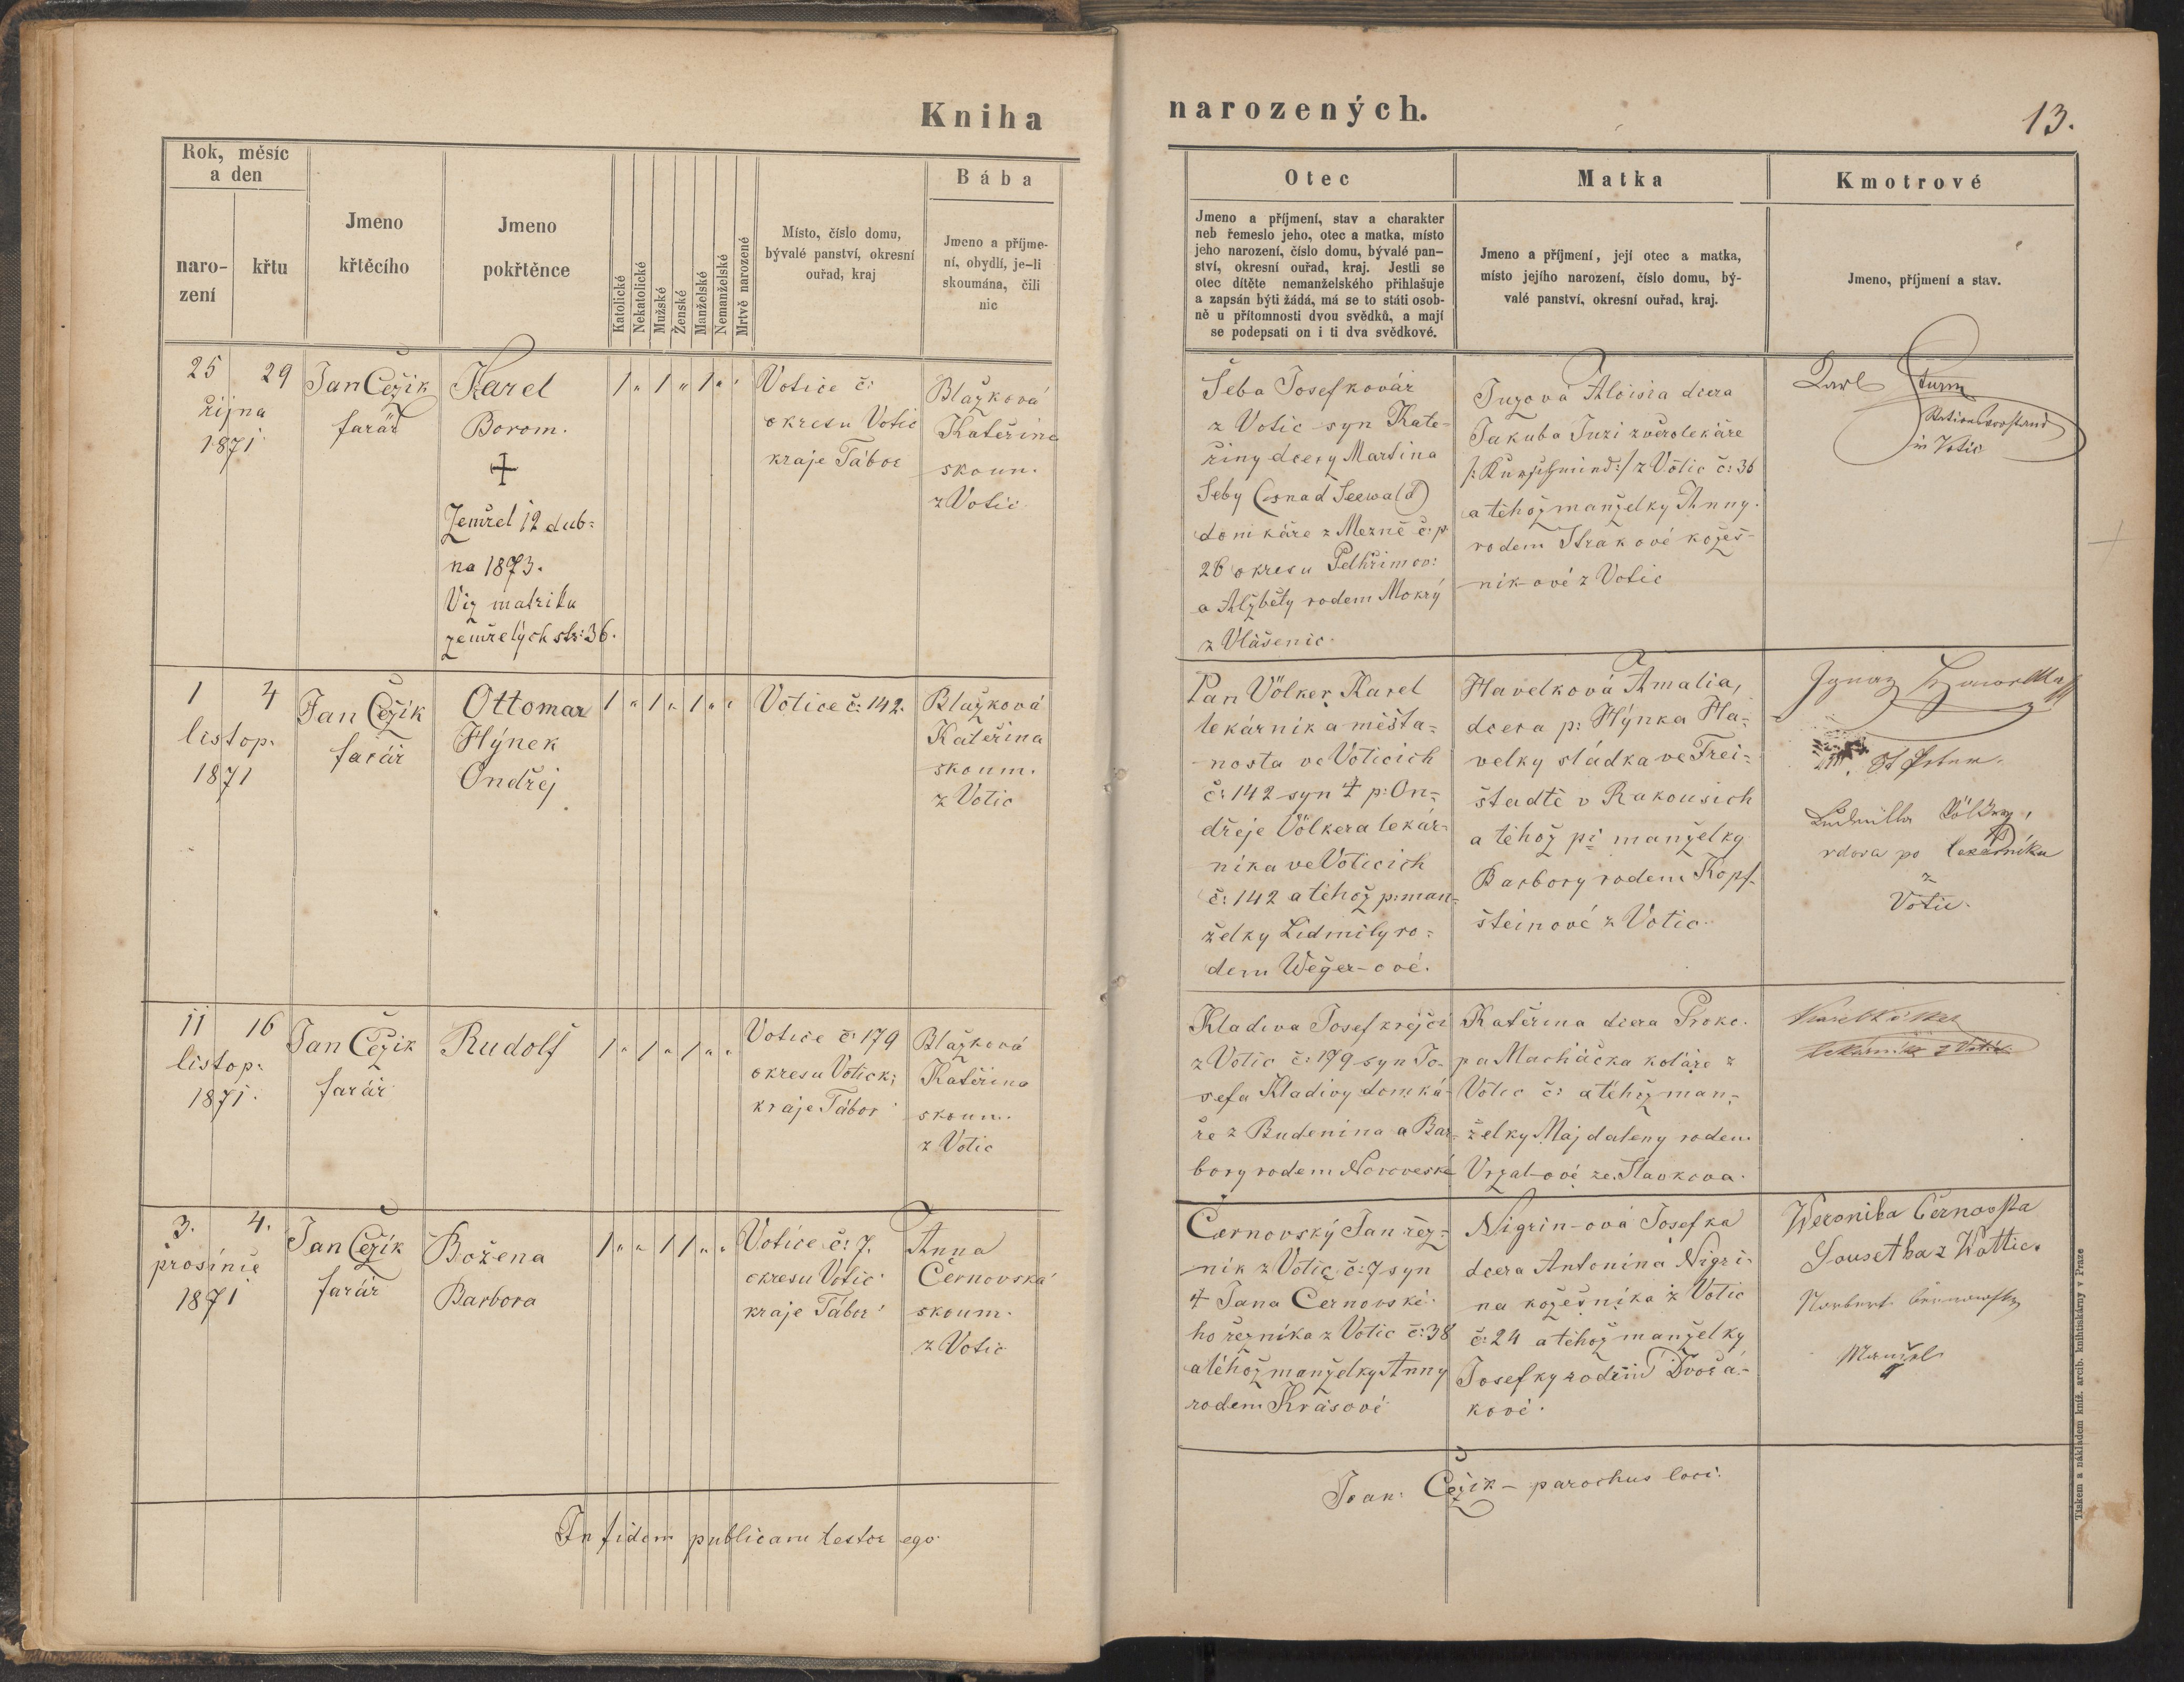 Kniha
narozených.
13.
Rok, měsíc
a den
naro-
zení
křtu
Jmeno
křtěcího
Jmeno
pokřtěnce
Katolické
Nekatolické
Mužské
Ženské
Manželské
Nemanželské
Mrtvě narozené
Místo, číslo domu,
bývalé panství, okresní
ouřad, kraj
Bába
Jmeno a příjme-
ní, obydlí, je-li
skoumána, čili
nic
Otec
Jmeno a příjmení, stav a charakter
neb řemeslo jeho, otec a matka, místo
jeho narození, číslo domu, bývalé pan-
ství, okresní ouřad, kraj. Jestli se
otec dítěte nemanželského přihlašuje
a zapsán býti žádá, má se to státi osob-
ně u přítomnosti dvou svědků, a mají
se podepsati on i ti dva svědkové.
Matka
Jmeno a příjmení, její otec a matka,
místo jejího narození, číslo domu, bý-
valé panství, okresní ouřad, kraj.
Kmotrové
Jmeno, příjmení a stav.
25
října
1871
29
Jan Čežik
farář
Karel
Borom.
+
Zemřel 12 dub=
na 1873.
Viz matriku
zemřelých str: 36.
1 " 1 " 1 " "
Votice č:
okresu Votic
kraje Tábor
Blažková
Kateřina
skoum.
z Votic
Šeba Josef kovář
z Votic syn Kate-
řiny dcery Martina
Šeby (snad Seewald)
domkáře z Mezné č: p
26 okresu Pelhřimov:
a Alžběty rodem Mokrý
z Vlášenic.
Aloisia dcera
Jakuba zvěrolékaře
z Votic č: 36
a téhož manželky Anny
rodem Strakové kožeš-
nikové z Votic
Karl Sturm
Stationsvorstand
in Votic
1
listop.
1871
4
Jan Čežik
farář
Ottomar
Hýnek
Ondřej
1 " 1 " 1 " "
Votice č: 142.
Blažková
Kateřina
skoum.
z Votic
Pan Völker Karel
lekárník a měšta=
nosta ve Voticích
č: 142 syn † p: On=
dřeje Völkera lekár=
níka ve Voticích
č: 142 a téhož p: man=
želky Lidmily ro=
dem Weger-ové.
Havelková Amalia,
dcera p: Hýnka Ha=
velky sládka ve Frei=
štadtě v Rakousích
a téhož p: manželky
Barbory rodem Kopf-
šteinové z Votic.
Ignaz
Ludmilla Völker,
vdova po lekárníku
z
Votic.
11
listop.
1871.
16
Jan Čežik
farář
Rudolf
1 " 1 " 1 " "
Votice č: 179
okresu Votick:
kraje Tábor
Blažková
Kateřina
skoum.
z Votic
Kladiva Josef krejčí
z Votic č: 179 syn Jo-
sefa Kladivy domká-
ře z Budenina a Bar-
bory rodem Novoveské
Kateřina dcera Proko-
pa Macháčka koláře z
Votic č: a téhož man-
želky Majdaleny rodem
Vrzal-ové ze Slavkova.
Karel Völker
lekárník z Votic
3.
prosince
1871
4.
Jan Čežik
farář
Božena
Barbora
1 " " 1 1 " "
Votice č: 7.
okresu Votic
kraje Tábor
Anna
Černovská
skoum.
z Votic
Černovský Jan řez=
ník z Votic č: 7 syn
† Jana Černovské-
ho řezníka z Votic č: 38
a téhož manželky Anny
rodem Krásové
Nigrin-ová Josefka
dcera Antonína Nigri-
na kožešníka z Votic
č: 24 a téhož manželky
Josefky rodem Dvořá-
kové.
Weronika Černovska
z Wottic.
Norbert
Manžel
In fidem publicam testor ego
Joan: Čežik - parochus loci.
Tiskem a nákladem kníž. arcib. knihtiskárny v Praze